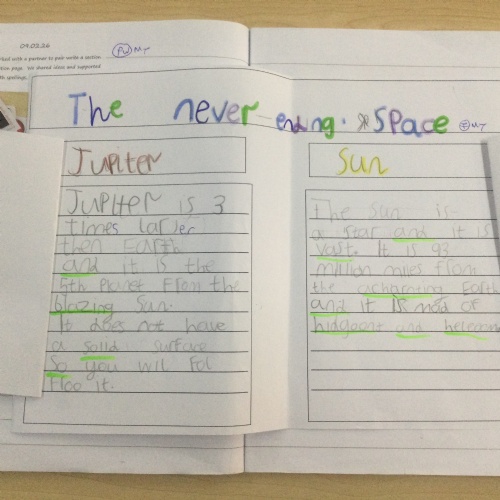 09.02.26
rked with a partner to pair-write a section
tion page. We shared ideas and supported
with spellings.
The never ending. Space
Jupiter
Jupiter is 3
times larjer
then Earth
and it is the
5th Planet from the
blazing Sun.
It does not have
a solid surface
So you wil fol
froo it.
Sun
The Sun is
a star and it is
vast. It is 93
million miles from
the Earth
and it is mad of
hidgoont and heleeam